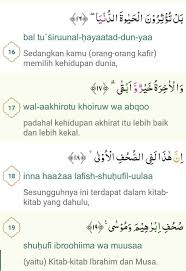 بَلْ تُؤْثِرُونَ الْحَيٰوةَ الدُّنْيَاۖ ﴿١٦﴾
bal tu'siruunal-ḥayaatad-dun-yaa
16
Sedangkan kamu (orang-orang kafir)
memilih kehidupan dunia,
وَالْاٰخِرَةُ خَيْرٌ وَّاَبْقٰىۗ ﴿١٧﴾
wal-aakhirotu khoiruw wa abqoo
17
padahal kehidupan akhirat itu lebih baik
dan lebih kekal.
اِنَّ هٰذَا لَفِى الصُّحُفِ الْاُوْلٰىۙ ﴿١٨﴾
inna haażaa lafish-shuḥufil-uulaa
18
Sesungguhnya ini terdapat dalam kitab-
kitab yang dahulu,
صُحُفِ اِبْرٰهِيْمَ وَمُوْسٰى ﴿١٩﴾
shuḥufi ibroohiima wa muusaa
19
(yaitu) Kitab-kitab Ibrahim dan Musa.